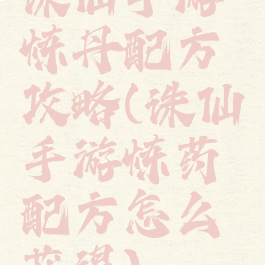 诛仙手游
炼丹配方
攻略(诛仙
手游炼药
配方怎么
获得)